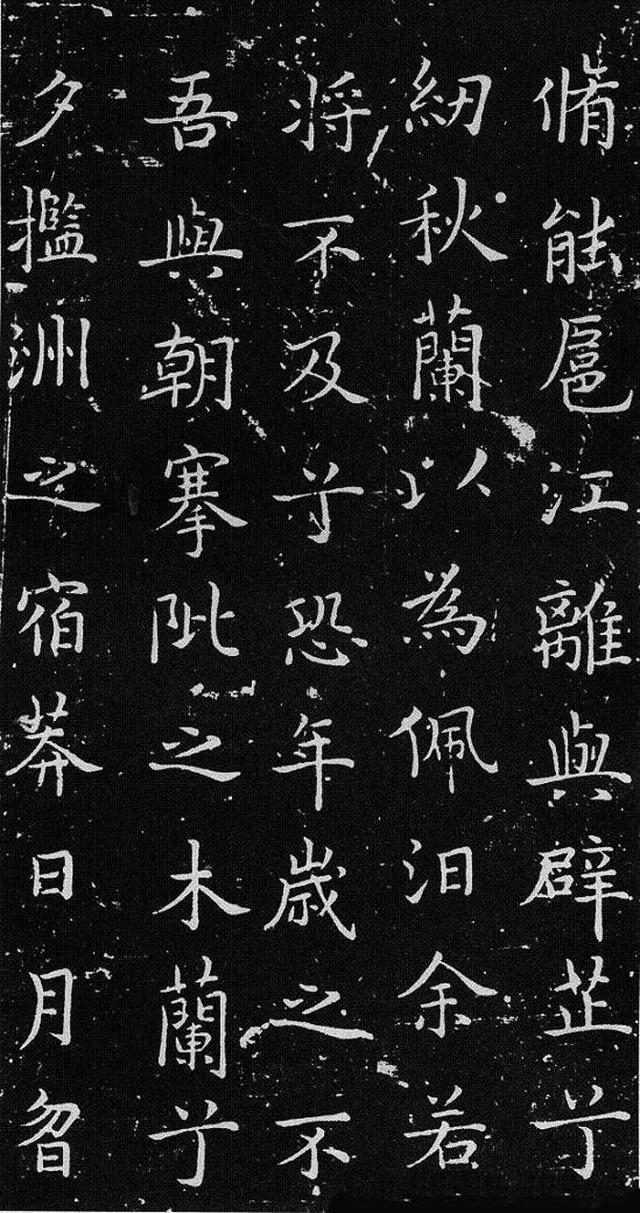 脩能扈江離與辟芷兮
紉秋蘭以為佩汩余若
将不及兮恐年歳之不
吾與朝搴阰之木蘭兮
夕擥洲之宿莽日月曶